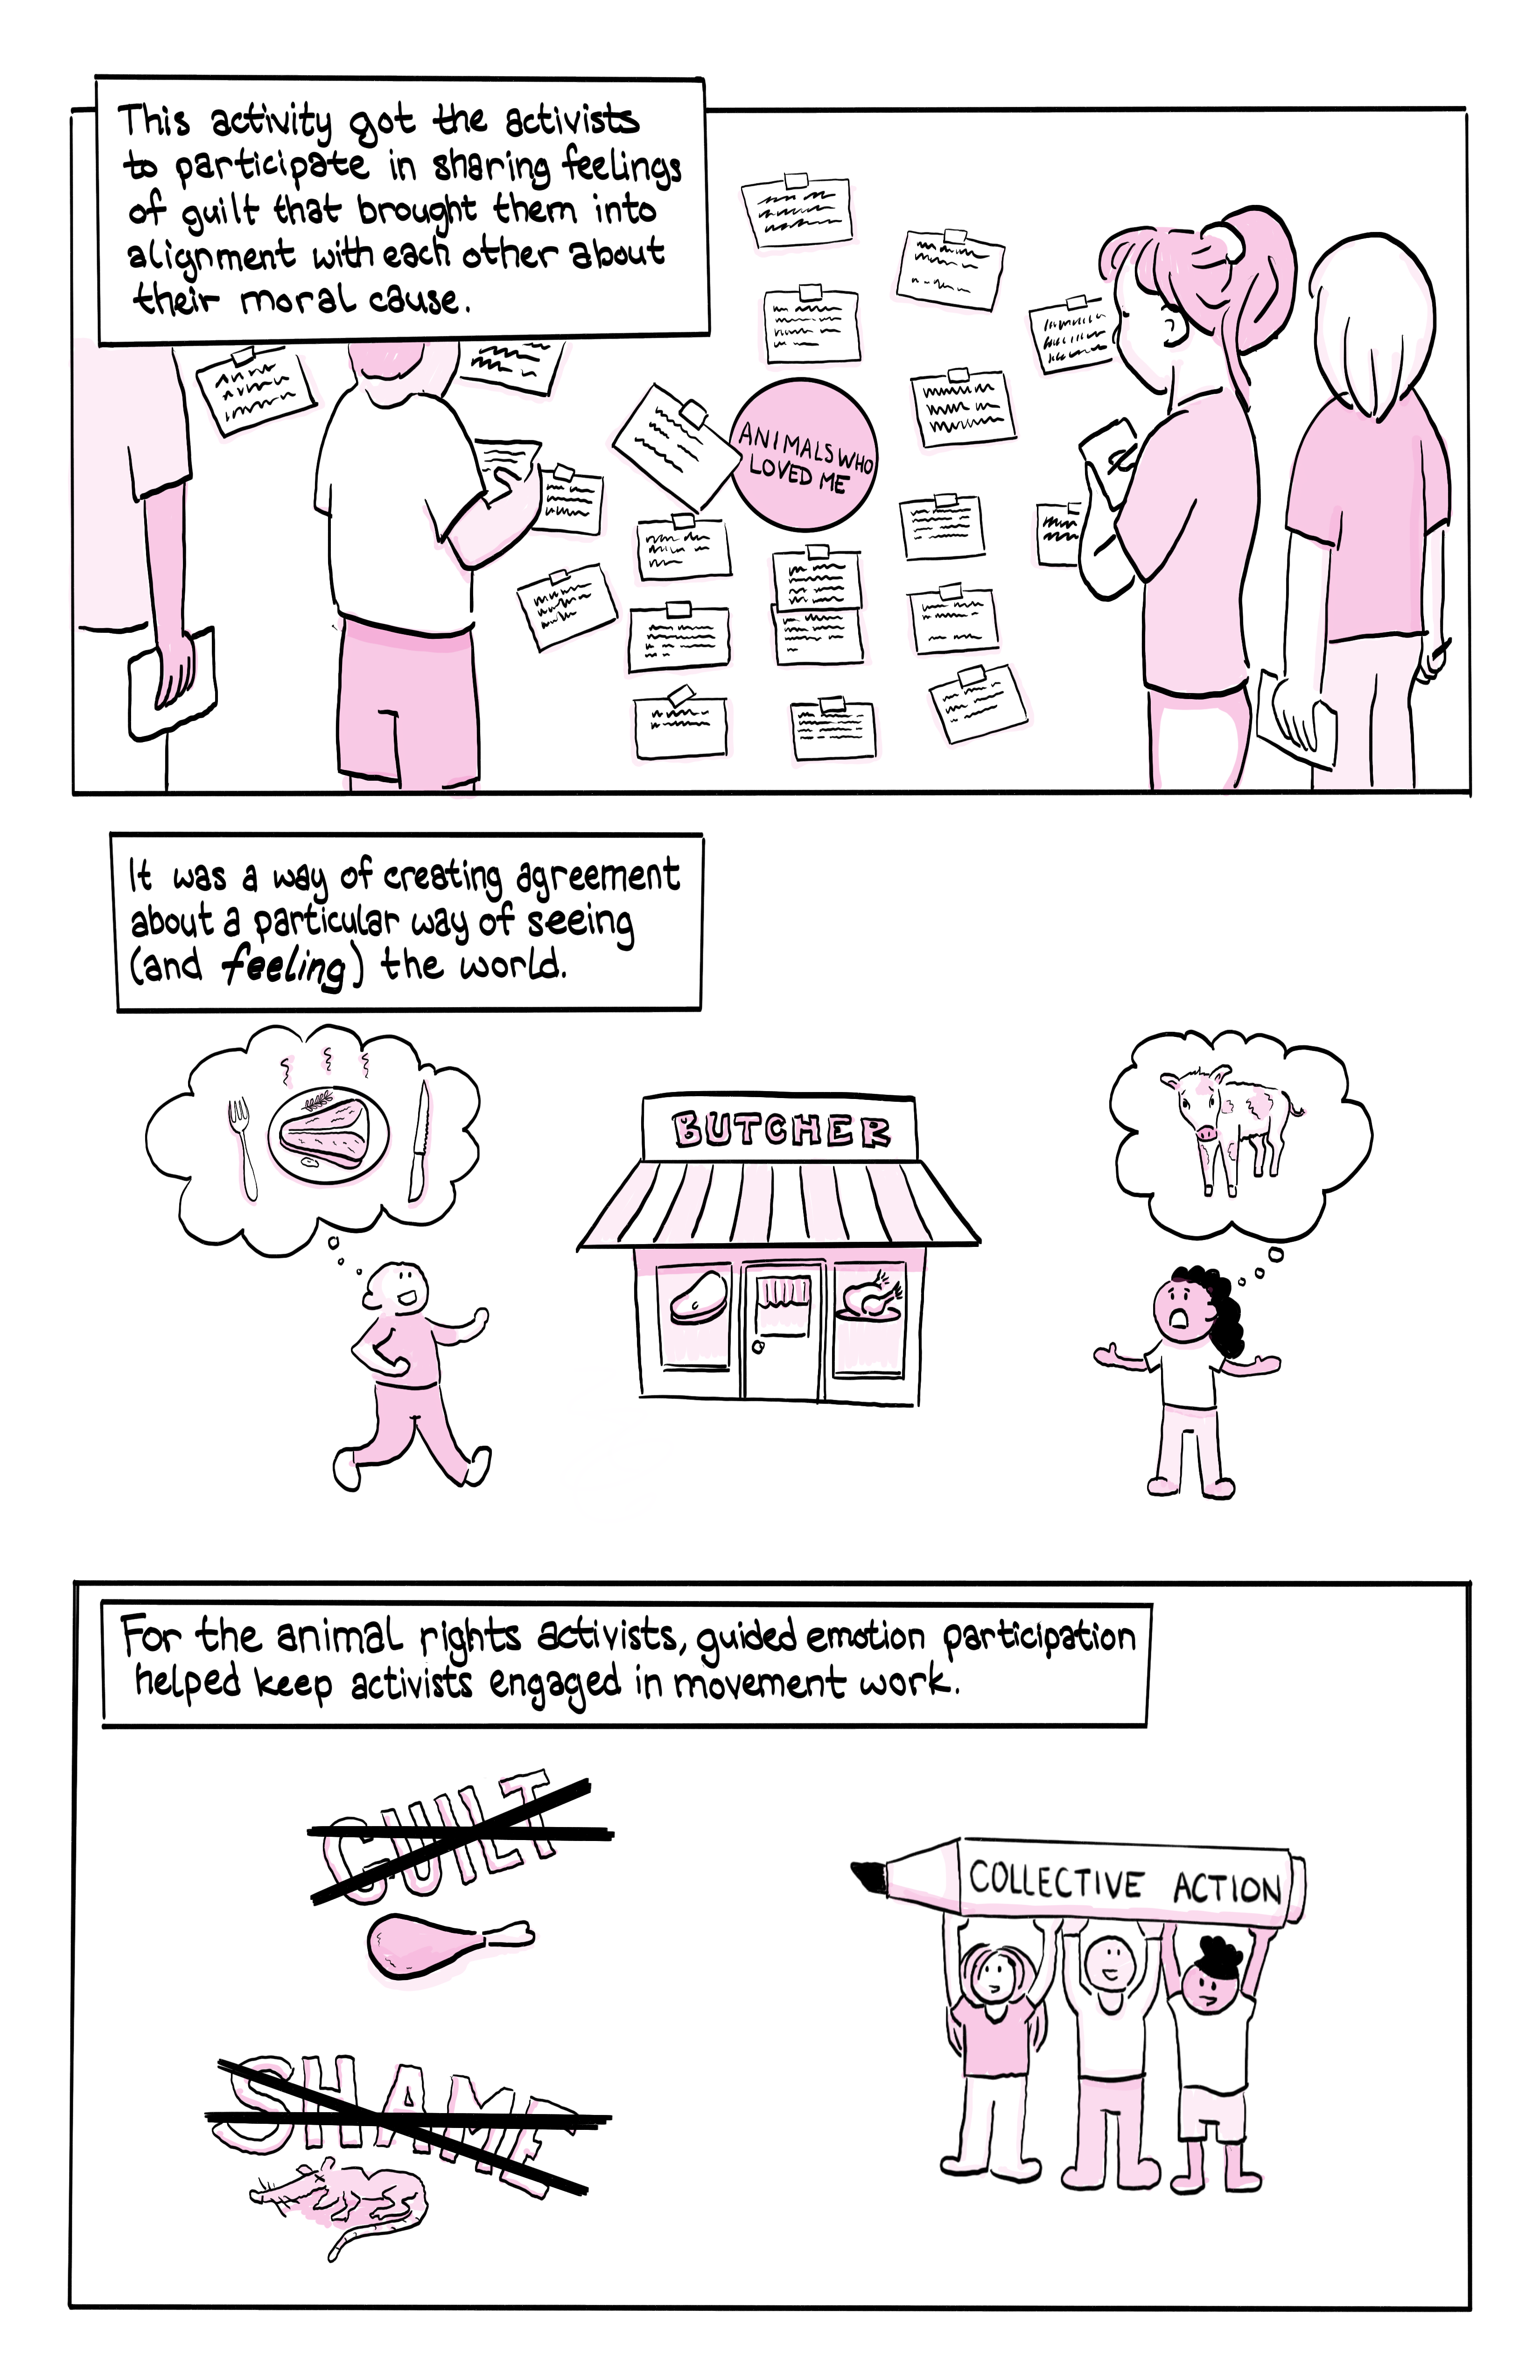 This activity got the activists
to participate in sharing feelings
of guilt that brought them into
alignment with each other about
their moral cause.
ANIMALS WHO
LOVED ME
It was a way of creating agreement
about a particular way of seeing
(and feeling) the world.
BUTCHER
For the animal rights activists, guided emotion participation
helped keep activists engaged in movement work.
GUILT
COLLECTIVE ACTION
SHAME